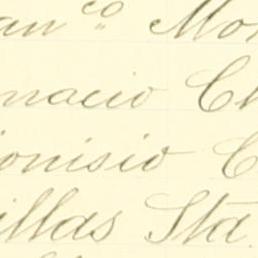 an co Mo
nacio Ch
ionisio C
illas Sta